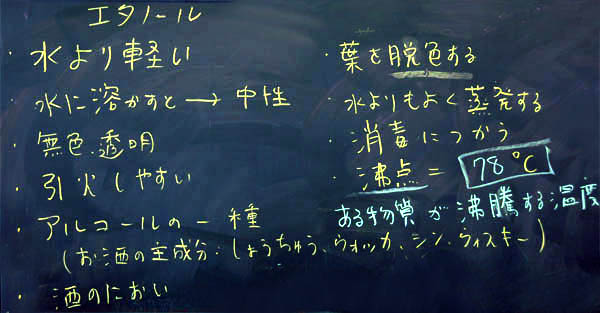 エタノール
・水より軽い
・水に溶かすと→中性
・無色透明
・引火しやすい
・アルコールの一種
(お酒の主成分・しょうちゅう、ウォッカ、ジン、ウィスキー)
・酒のにおい
・葉を脱色する
・水よりもよく蒸発する
・消毒につかう
・沸点=78℃
ある物質が沸騰する温度